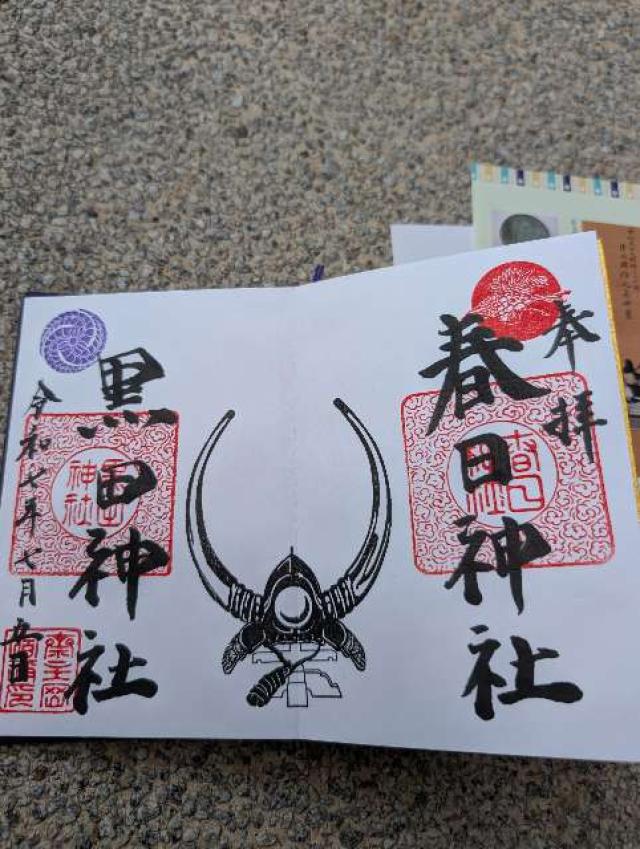 奉拝
春日神社
黒田神社
令和七年七月廿日